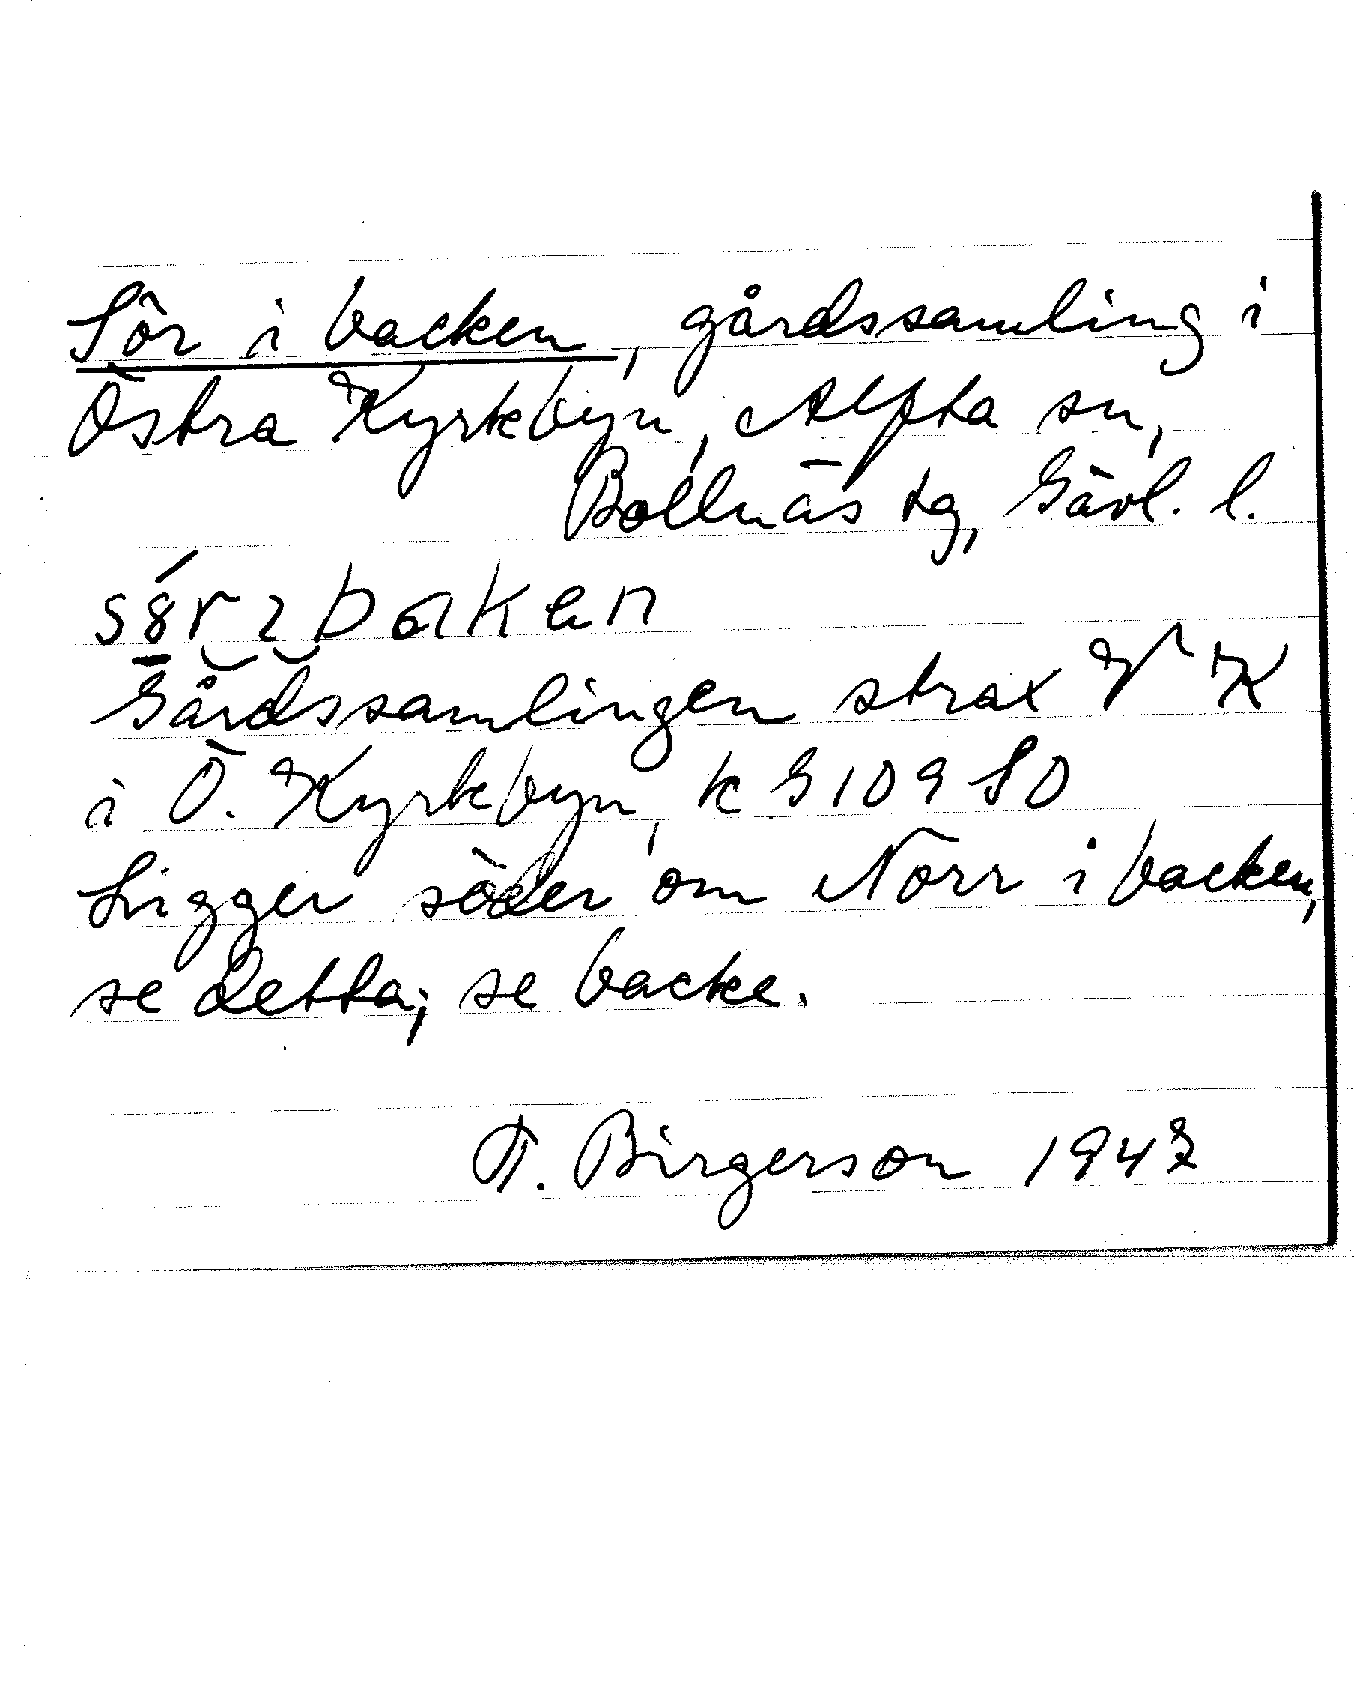 Sör i backen, gårdssamling i
Östra Kyrkbyn, Alfta sn,
Bollnäs tg, Gävl. l.
Gårdssamlingen strax V K
i Ö. Kyrkbyn, k G 109 SO
Ligger söder om Norr i backen,
se detta; se backe.
F. Birgerson 1947